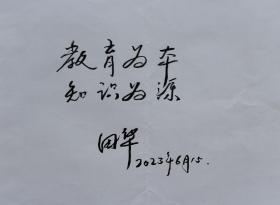 教育为本
知识为源
田华
2023年6月15.